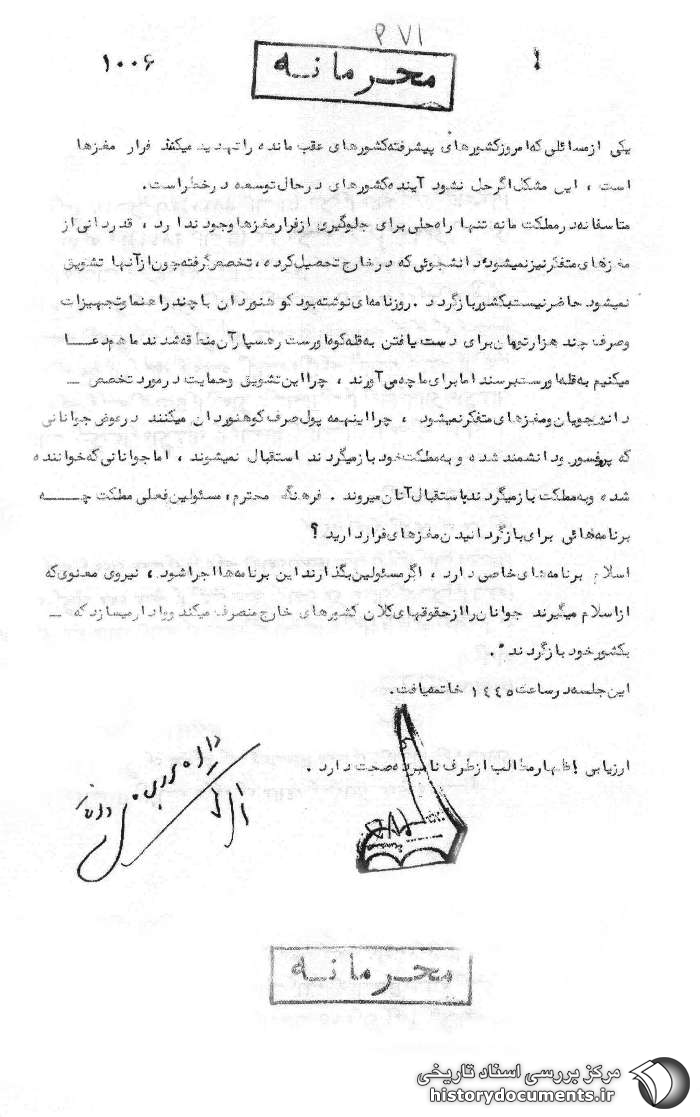 ۹۷۱
۱۰۰۶
محرمانه
یکی ازمسائلی که امروزکشورهای پیشرفته کشورهای عقب مانده راتهدید میکنند فرار مغزها
است ، این مشکل اگرحل نشود آینده کشورهای درحال توسعه درخطراست.
متاسفانه درمملکت مانه تنها راه حلی برای جلوگیری ازفرارمغزها وجود ندارد ، قدردانی از
مغزهای متفکرنیزنمیشود دانشجوئی که درخارج تحصیل کرده ، تخصص گرفته چون ازآنها تشویق
نمیشود حاضرنیست بکشوربازگردد . روزنامه ای نوشته بود کوهنوردان با چند راهنما وتجهیزات
وصرف چند هزارتومان برای دست یافتن به قله کوه اورست رهسپارآن منطقه شدند ماهم دعا
میکنیم به قله اورست برسند اما برای ما چه می آورند ، چرا این تشویق وحمایت درمورد تخصص ـ
دانشجویان ومغزهای متفکرنمیشود ، چرا اینهمه پول صرف کوهنوردان میکنند درعوض جوانانی
که پرفسور ودانشمند شده و به مملکت خود بازمیگردند استقبال نمیشوند ، اما جوانانی که خواننده
شده وبه مملکت بازمیگردند باستقبال آنان میروند . فرهنگ محترم ، مسئولین فعلی مملکت چـــه
برنامه هائی برای بازگردانیدن مغزهای فراردارید ؟
اسلام برنامه های خاصی دارد ، اگرمسئولین بگذارند این برنامه ها اجرا شود ، نیروی معنوی که
ازاسلام میگیرند جوانان را ازحقوقهای کلان کشورهای خارج منصرف میکند ووادارمیسازد که ـ
بکشورخود بازگردند" .
این جلسه درساعت ۱۴۴۵ خاتمه یافت.
ارزیابی اظهارمطالب ازطرف نامبرده صحت دارد .
محرمانه
مرکز بررسی اسناد تاریخی
historydocuments.ir